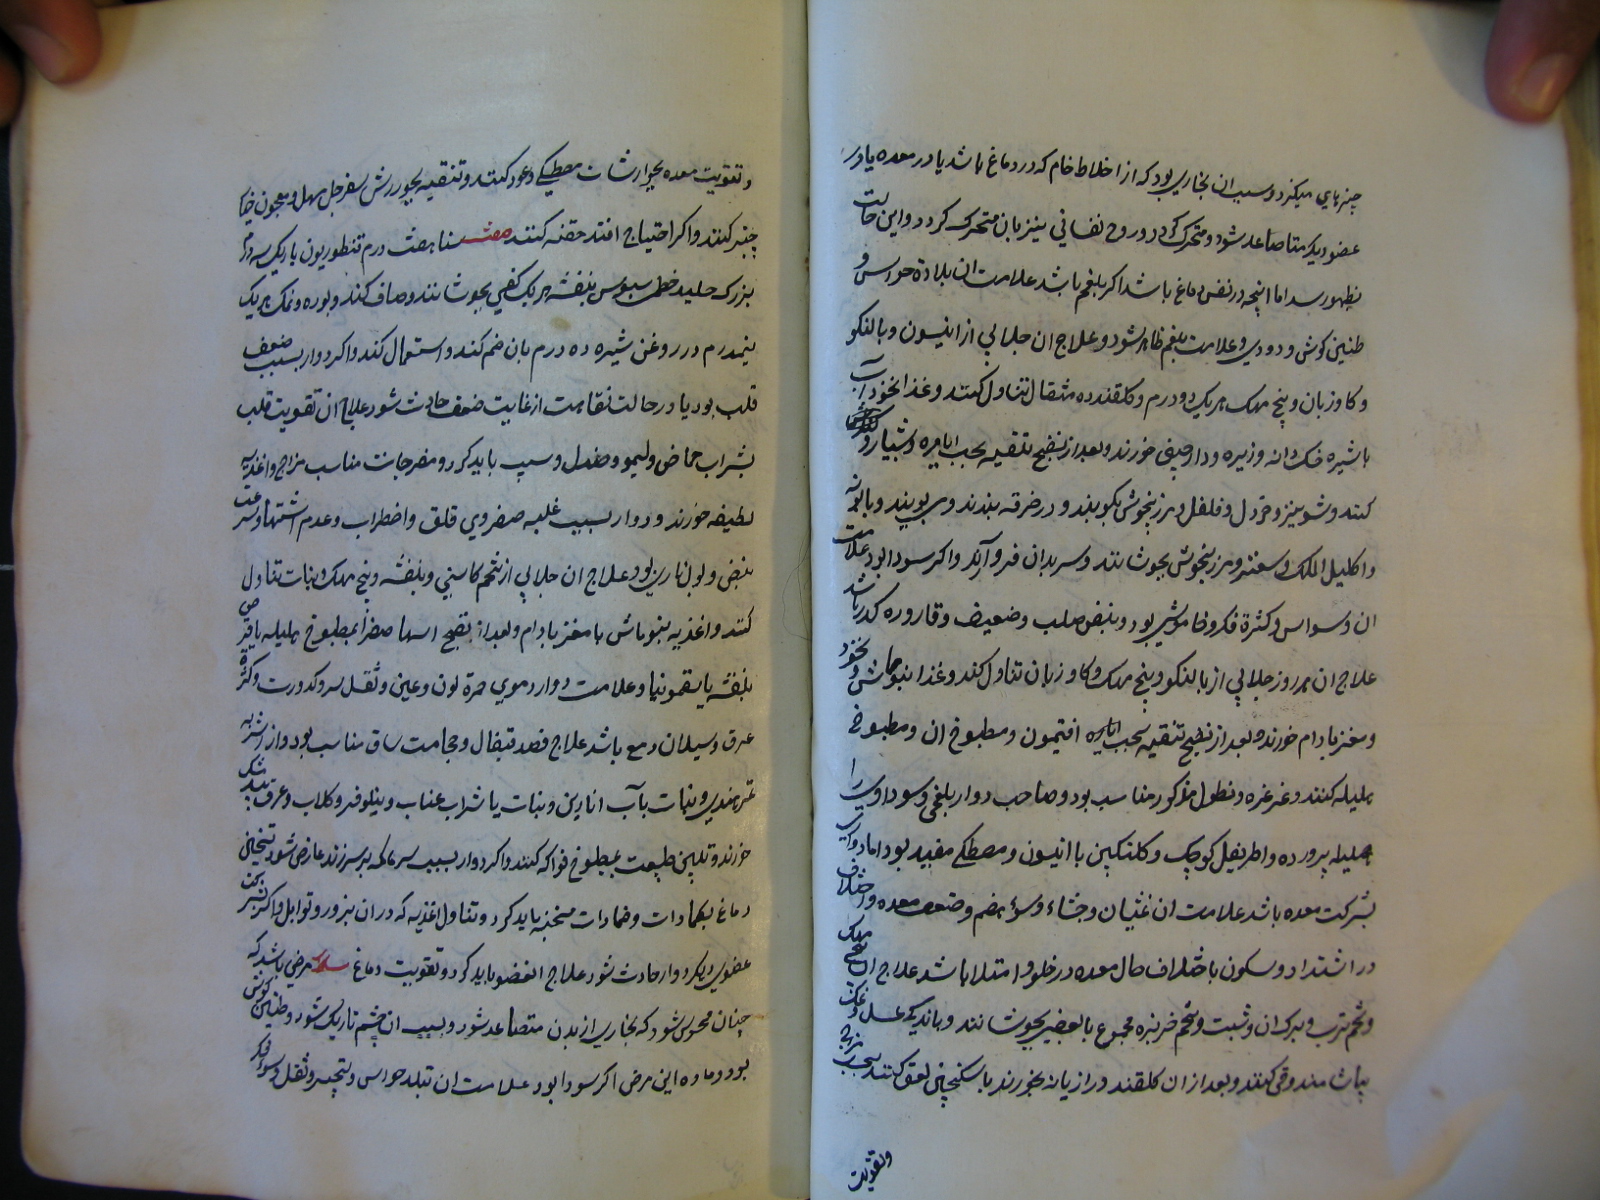 چیزهای میکرد و سبب ان بخاری بود که از اخلاط خام که در دماغ باشد یا در معده یا در
عضو دیکر متصاعد شود و متحرک کردد و روح نفسانی نیز بان متحرک کردد و این حالت
بظهور رسد اما اینچه در نفس دماغ باشد اکر بلغم باشد علامت ان بلادة حواس و
طنین کوش و دودی و علامت بلغم ظاهر شود و علاج ان جلابی از انیسون و بالنکو
و کاوزبان و بیخ مهک هریک دو درم و کلقند ده مثقال تناول کنند و غذا نخوداب
با شیره خشکدانه و زیره و دارچینی خورند و بعد از نضج تنقیه بحب ایارج و شبیار
کنند و شونیز و خردل و فلفل و مرزنجوش بکوبند و در خرقه بندند و می بویند و بابونه
و اکلیل الملک و سعتر و مرزنجوش بجوشانند و سر بدان فرو آرند و اکر سودا بود علامت
ان وسواس و کثرة فکر و خاموشی بود و نبض صلب و ضعیف و قاروره کدر باشد
علاج ان هر روز جلابی از بالنکو و بیخ مهک و کاوزبان تناول کند و غذا بنوماش و نخود
و مغز بادام خورند و بعد از نضج تنقیه بحب افتیمون و مطبوخ ان و مطبوخ
هلیله کنند و غرغره و نطول مذکور مناسب بود و صاحب دوار بلغمی و سوداوی را
هلیله پرورده و اطریفل کوچک و کلنکبین با انیسون و مصطکی مفید بود اما دواری
بشرکت معده باشد علامت ان غثیان و جشاء و سوء هضم و ضعف معده و اختلاف
در اشتداد و سکون باختلاف حال معده در خلو و امتلا باشد علاج ان
و تخم ترب و برک ان و شبت و تخم خربزه مجموع یا بعضی بجوشانند و باندکی عسل و نمک
بیاشامند و قی کنند و بعد از ان کلقند و رازیانه بخورند یا سکنجبین لعق کنند
وتقویت
و تقویت معده بجوارشات مصطکی و عود کنند و تنقیه بجوارش سفرجل مسهل و معجون
چنبر کنند و اکر احتیاج افتد حقنه کنند صفت سنا هفت درم قنطوریون باریک سه درم
بزرک حلبه خطمی سبوس بنفشه هریک کفی بجوشانند و صاف کنند و بوره و نمک هریک
نیمدرم در روغن شیره ده درم بان ضم کنند و استعمال کنند و اکر دوار بسبب ضعف
قلب بود یا در حالت نقاهت از غایت ضعف حادث شود علاج ان تقویت قلب
بشراب حماض و لیمو و صندل و سیب باید کرد و مفرحات مناسب مزاج و اغذیه
لطیفه خورند و دوار بسبب غلبه صفراوی قلق و اضطراب و عدم اشتها و سرعت
نبض و لون نارین بود علاج ان جلابی از تخم کاسنی و بنفشه و بیخ مهک و نبات تناول
کنند و اغذیه بنوماش با مغز بادام و بعد از نضج اسهال صفرا بمطبوخ هلیله یا قرص
بنفشه یا سقمونیا و علامت دوار دموی حمرة لون و عین و ثقل سر و کدورت و کثرة
عرق و سیلان دمع باشد علاج فصد قیفال و حجامت ساق مناسب بود و از اشربه
تمرهندی و نبات باب انارین و نبات یا شراب عناب و نیلوفر و کلاب و عرق بیدمشک
خورند و تلیین طبیعت بمطبوخ فواکه کنند و اکر دوار بسبب سرما که بر سر زند عارض شود تسخین
دماغ بکمادات و ضمادات مسخنه باید کرد و تناول اغذیه که در ان بزور و توابل و اکر بشرکت
عضوی دیکر دوار حادث شود علاج ان عضو باید کرد و تقویت دماغ سدر مرضی باشد که
چنان محسوس شود که بخاری از بدن متصاعد شود و بسبب ان چشم تاریک شود و طنین کوش
بود و ماده این مرض اکر سودا بود علامت ان تبلد حواس و تحیر و ثقل و سوء فکر